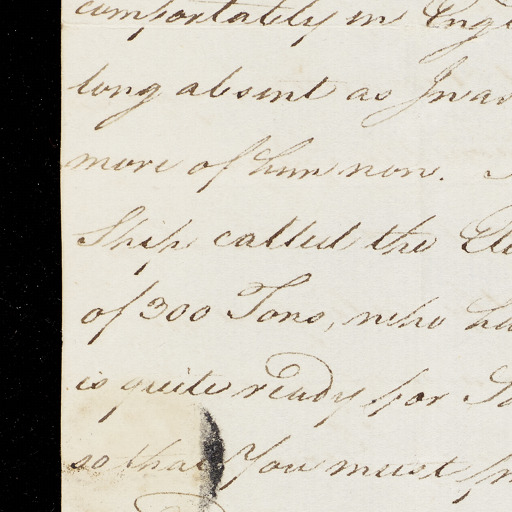 comfortably in Eng
long absent as I was
more of him now.
Ship called the El
of 300 Tons, who ha
is quite ready for Sa
so that You must